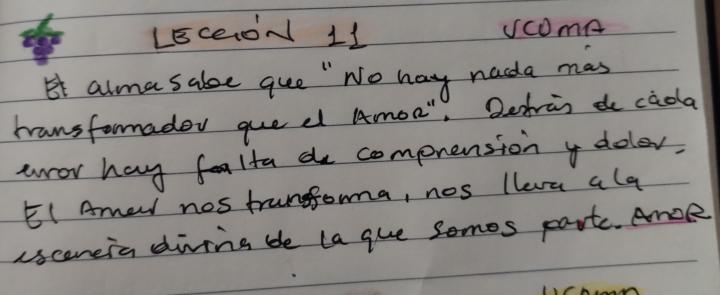 LECCIÓN 11 UCOMA
El alma sabe que "No hay nada más
transformador que el AMOR". Detrás de cada
error hay falta de comprensión y dolor.
El Amor nos transforma, nos lleva a la
escencia divina de la que somos parte. AMOR
UCOMA